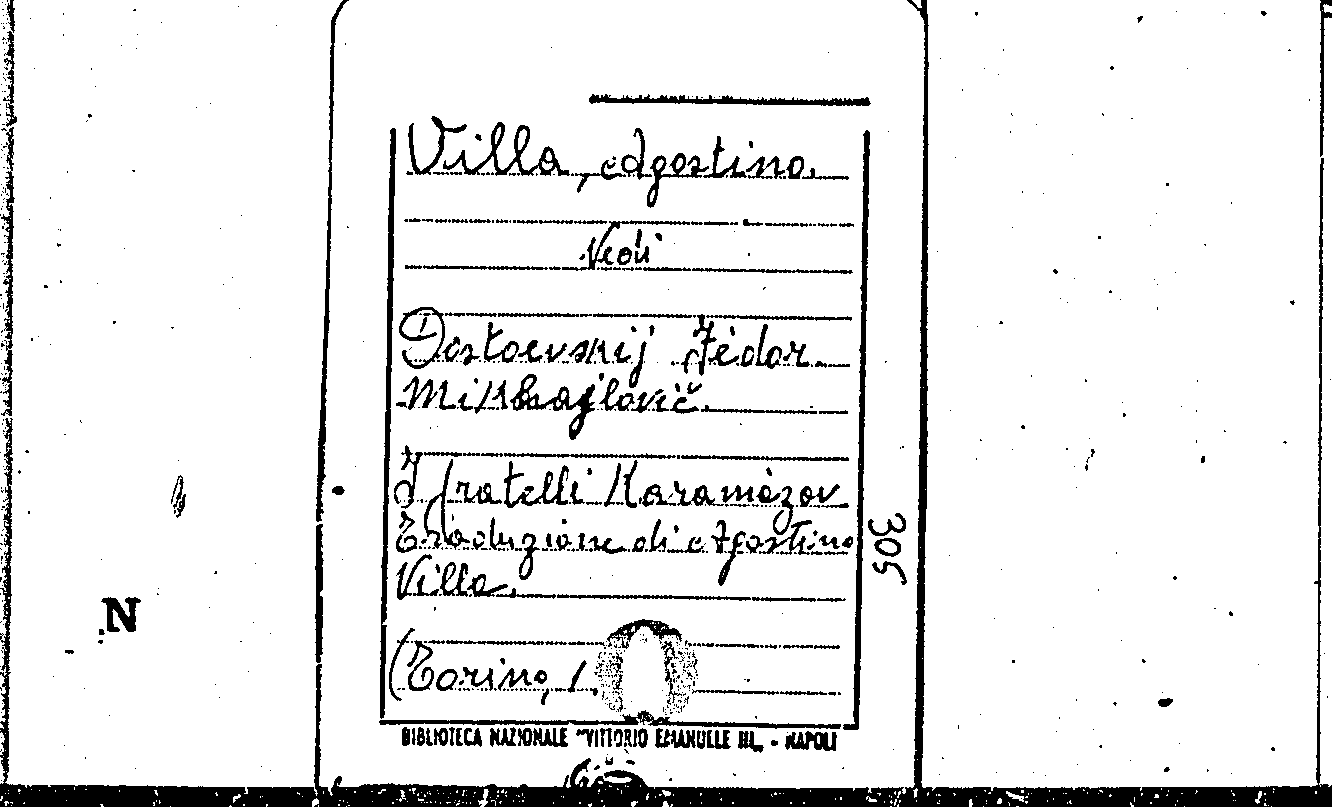 Villa, Agostino.
Vedi
Dostoevskij Fëdor
Mikhajlovič.
I fratelli Karamàzov
Traduzione di Agostino
Villa.
(Torino, 1.
305
N
BIBLIOTECA NAZIONALE "VITTORIO EMANUELE III„ - NAPOLI